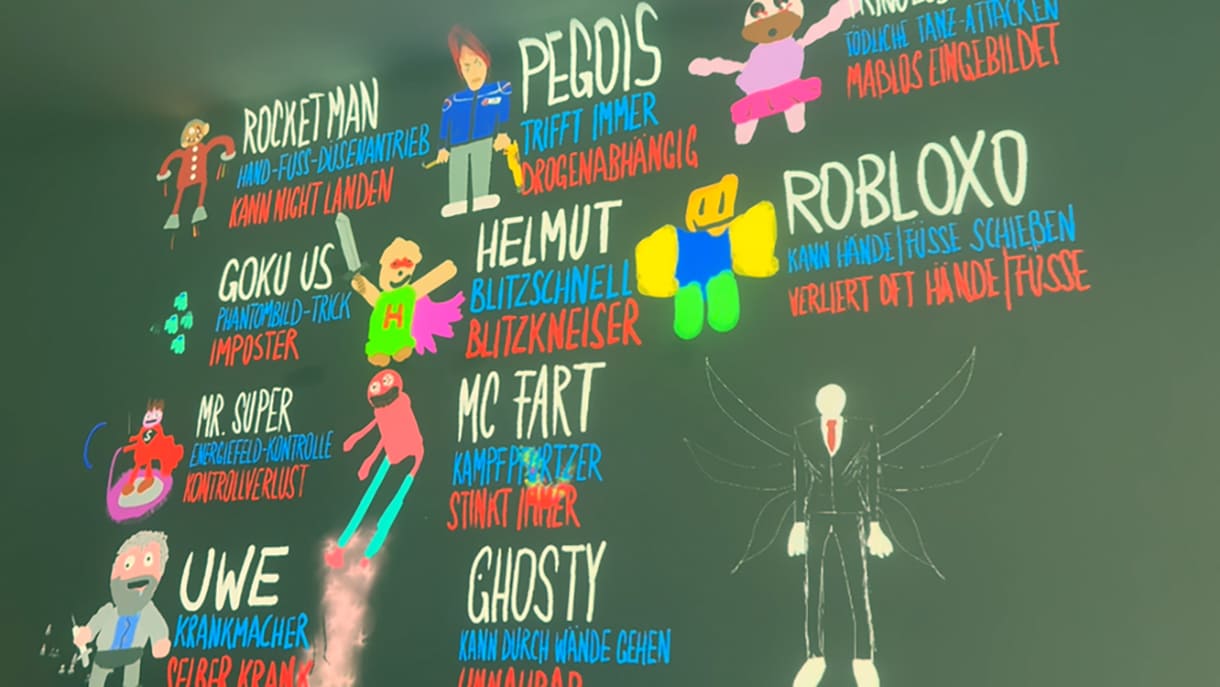 ROCKETMAN
HAND-FUSS-DÜSENANTRIEB
KANN NIGHT LANDEN
PEGOIS
TRIFFT IMMER
DROGENABHÄNGIG
TÖDLICHE TANZ-ATTACKEN
MAßLOS EINGEBILDET
GOKU US
PHANTOMBILD-TRICK
IMPOSTER
H
HELMUT
BLITZSCHNELL
BLITZKNEISER
ROBLOXO
KANN HÄNDE/FÜSSE SCHIEßEN
VERLIERT OFT HÄNDE/FÜSSE
S
MR. SUPER
ENERGIEFELD-KONTROLLE
KONTROLLVERLUST
MC FART
STINKT IMMER
UWE
KRANKMACHER
SELBER KRANK
GHOSTY
KANN DURCH WÄNDE GEHEN